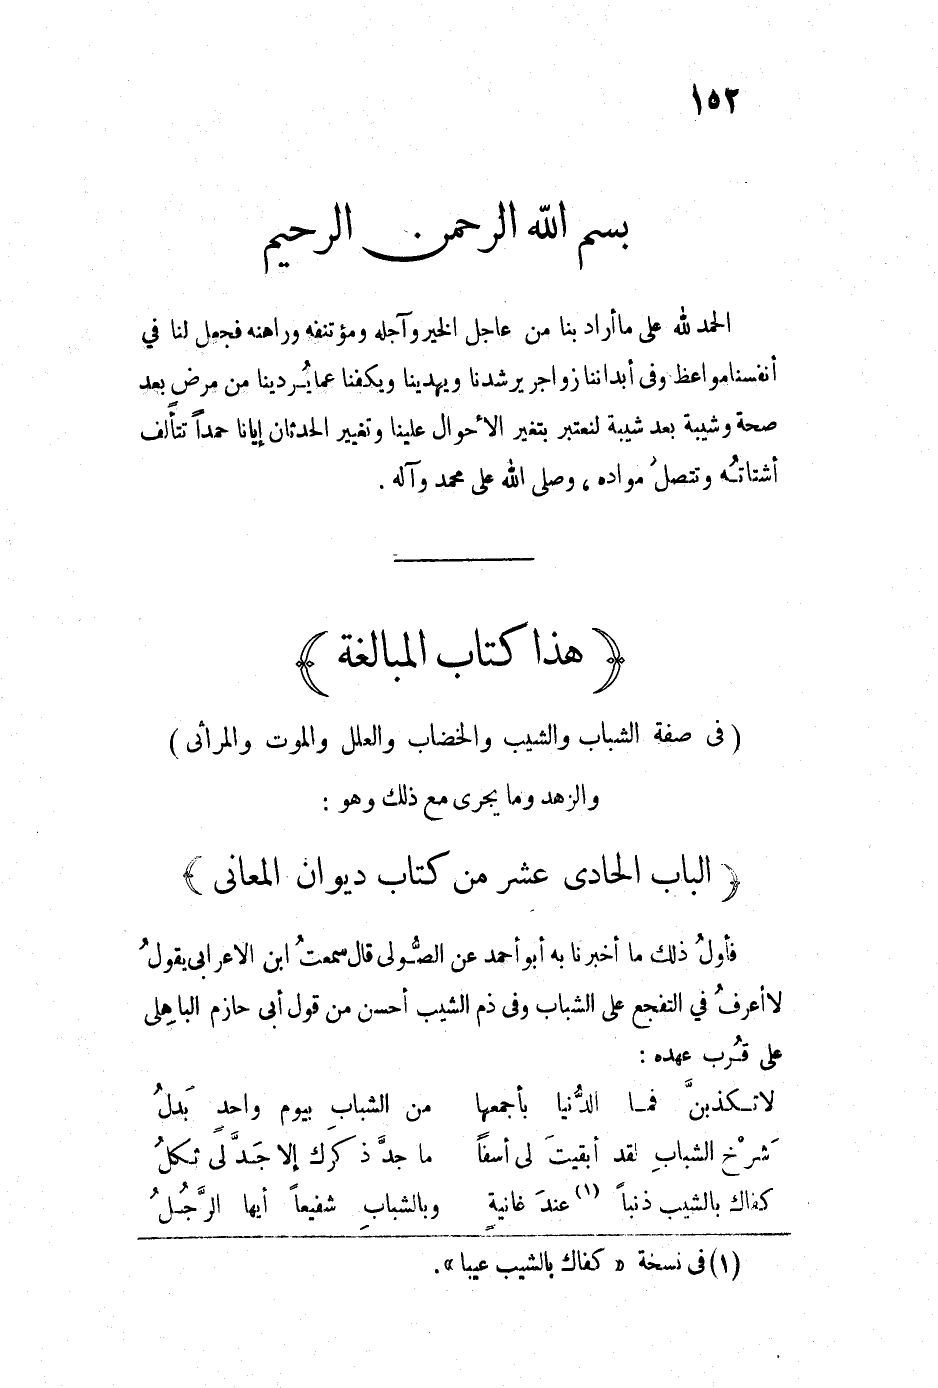 ١٥٢
بسم الله الرحمن الرحيم
الحمد لله على ما أراد بنا من عاجل الخير وآجله ومؤتنفه وراهنه فجعل لنا في
أنفسنا مواعظ وفى أبداننا زواجر يرشدنا ويهدينا ويكفنا عما يُردينا من مرضٍ بعد
صحة وشيبة بعد شيبة لنعتبر بتغير الأحوال علينا وتغيير الحدثان إيانا حمداً تتألف
أشتاتُه وتتصلُ مواده ، وصلى الله على محمد وآله .
﴿ هذا كتاب المبالغة ﴾
( فى صفة الشباب والشيب والخضاب والعلل والموت والمراثى )
والزهد وما يجرى مع ذلك وهو :
﴿ الباب الحادى عشر من كتاب ديوان المعانى ﴾
فأولُ ذلك ما أخبرنا به أبو أحمد عن الصُّولى قال سمعتُ ابن الاعرابى يقولُ
لا أعرفُ في التفجع على الشباب وفى ذم الشيب أحسن من قول أبى حازم الباهِلى
على قُرب عهده :
لاتكذبنَّ فما الدُّنيا بأجمعها من الشبابِ بيوم واحدٍ بَدلُ
شَرْخ الشبابِ لقد أبقيتَ لى أسفاً ما جدَّ ذكرك إلا جَدَّ لى ثكلُ
كفاك بالشيب ذنباً (١) عندَ غانيةٍ وبالشبابِ شفيعاً أيها الرَّجُلُ
(١) فى نسخة « كفاك بالشيب عيبا ».